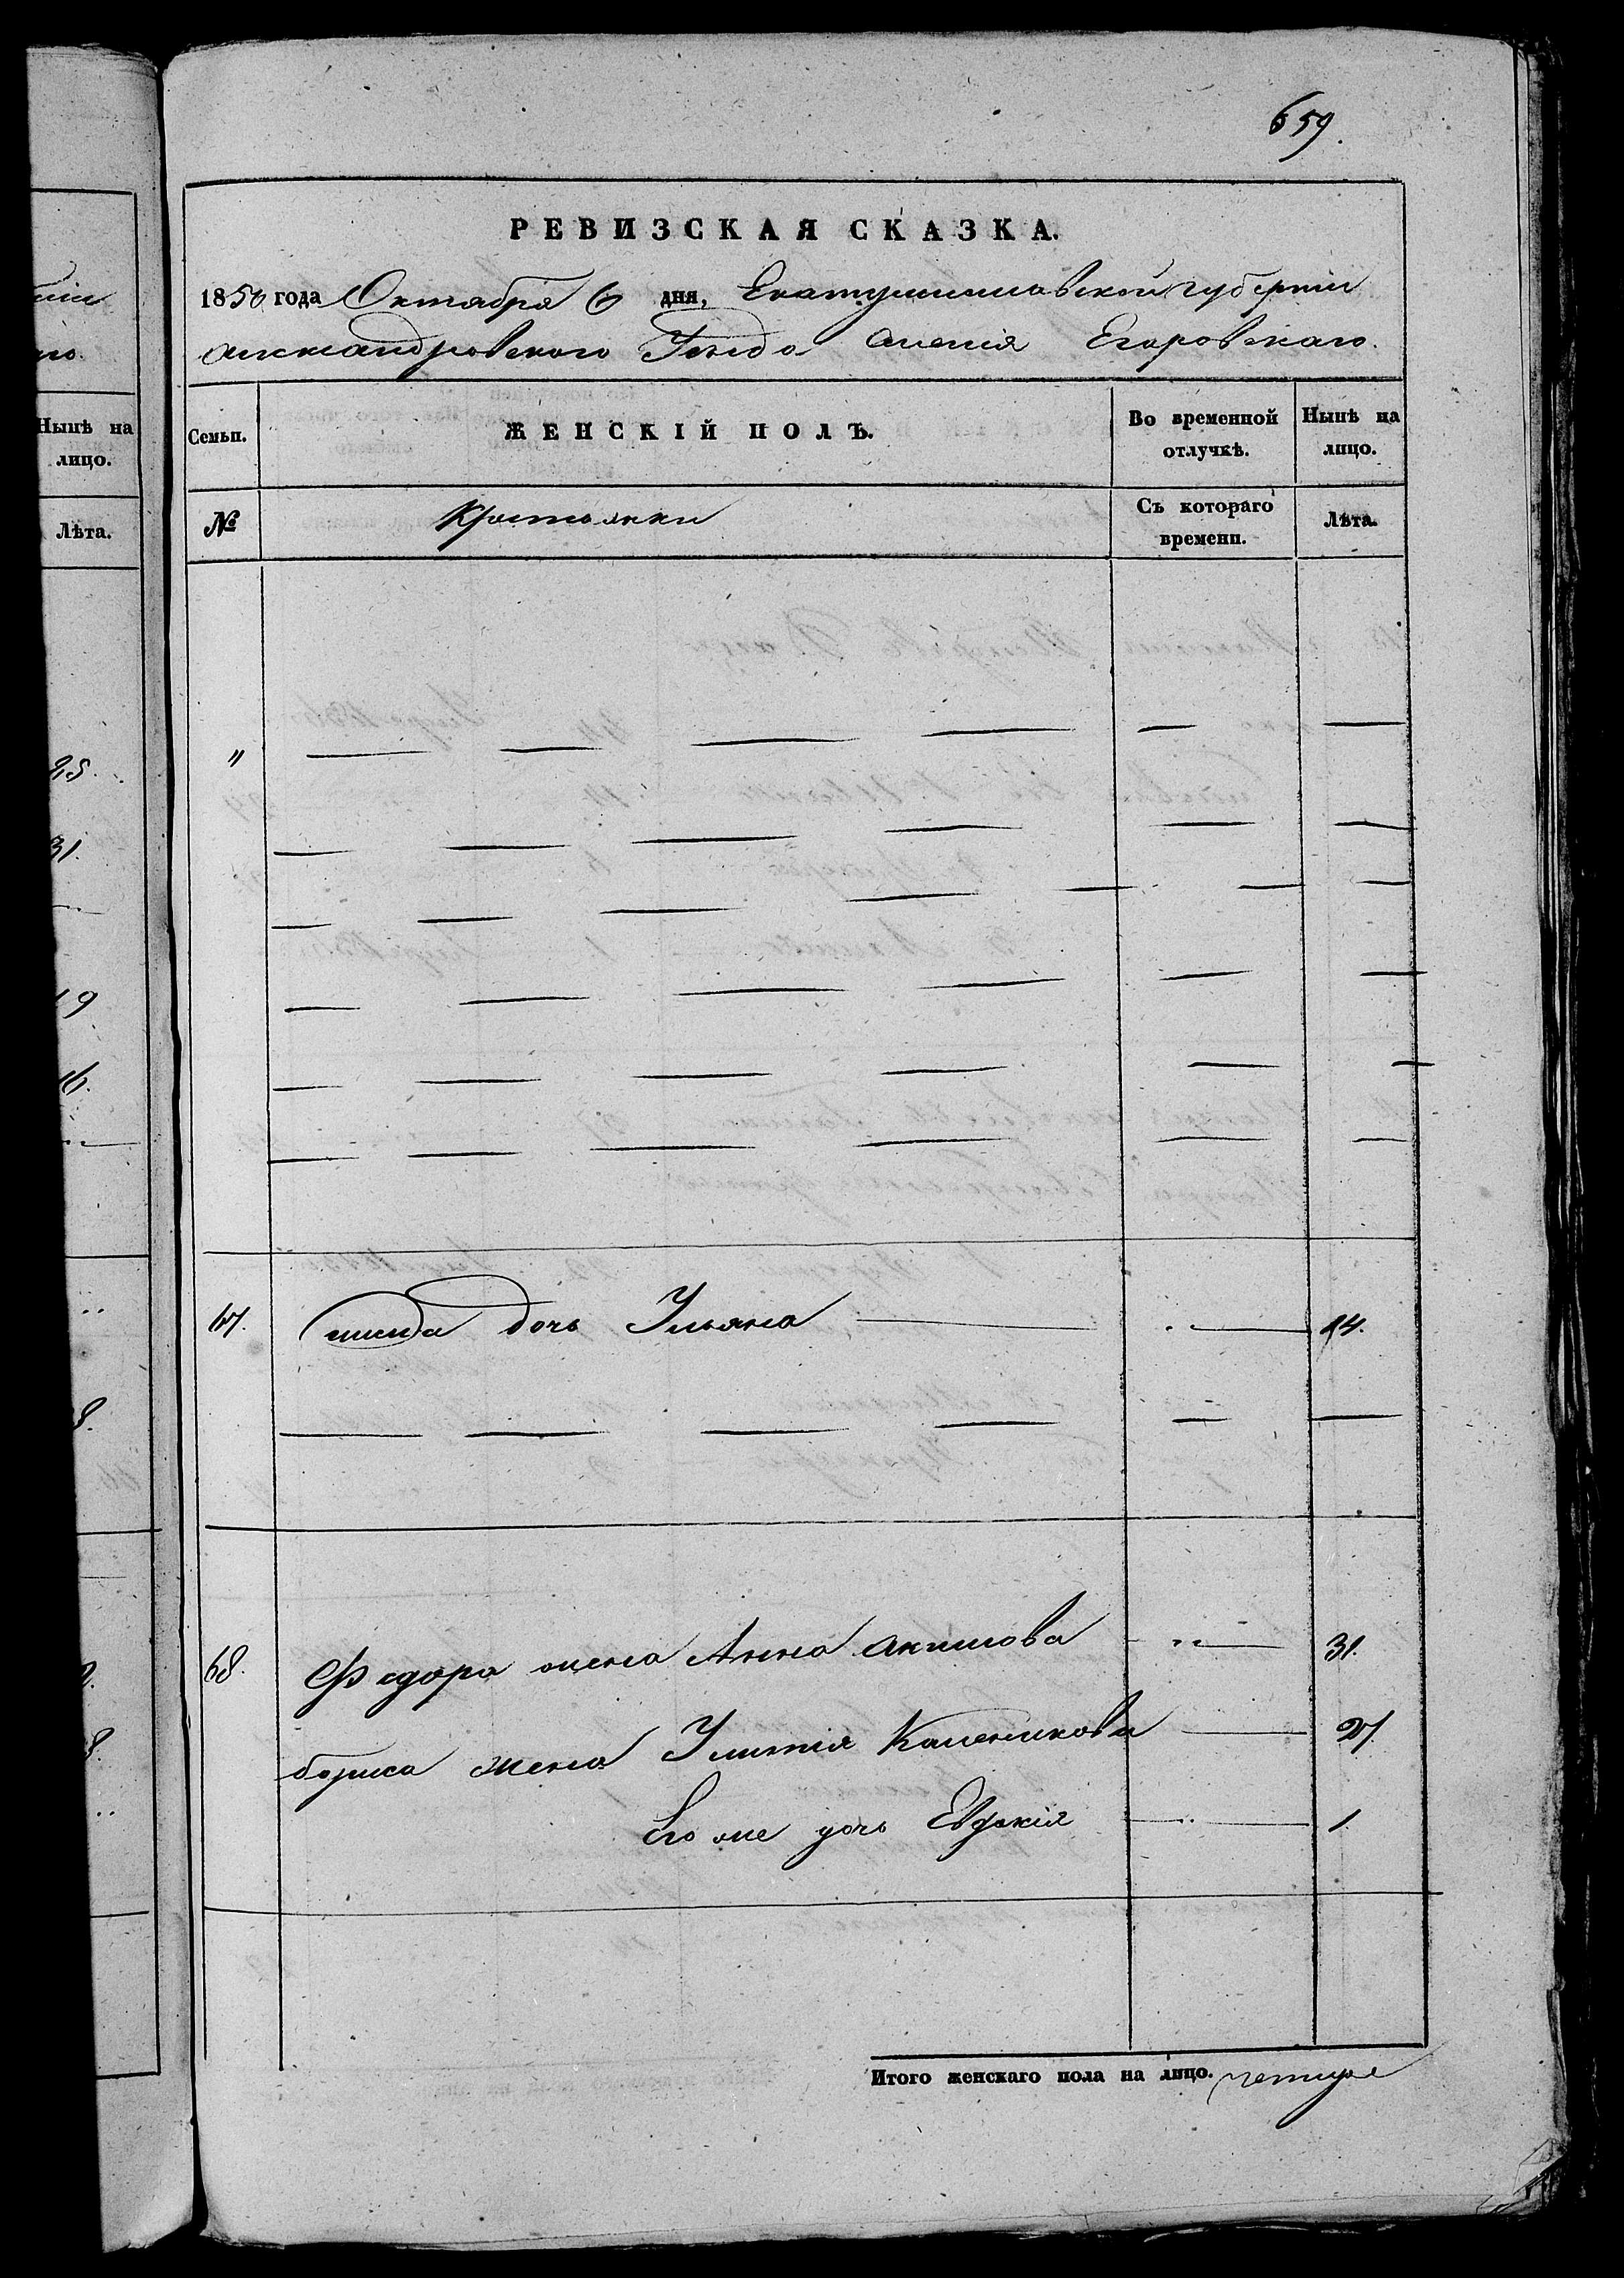 659.
РЕВИЗСКАЯ СКАЗКА.
1850 года Октября 6 дня, Екатеринославской губернии
Александровского Уезда имения Егоровскаго.
Семьи. ЖЕНСКІЙ ПОЛЪ. Во временной отлучкѣ. Нынѣ на лицо.
№ Крестьянки Съ котораго времени. Лѣта.
67. дочь Ульяна 14.
68. Федора жена Анна Акимова 31.
бориса жена Улитія Каленикова 27.
Его же дочь Евдокія 1.
Итого женскаго пола на лицо. четыре
Нынѣ на лицо.
Лѣта.
25.
31.
19
16.
8.
8.